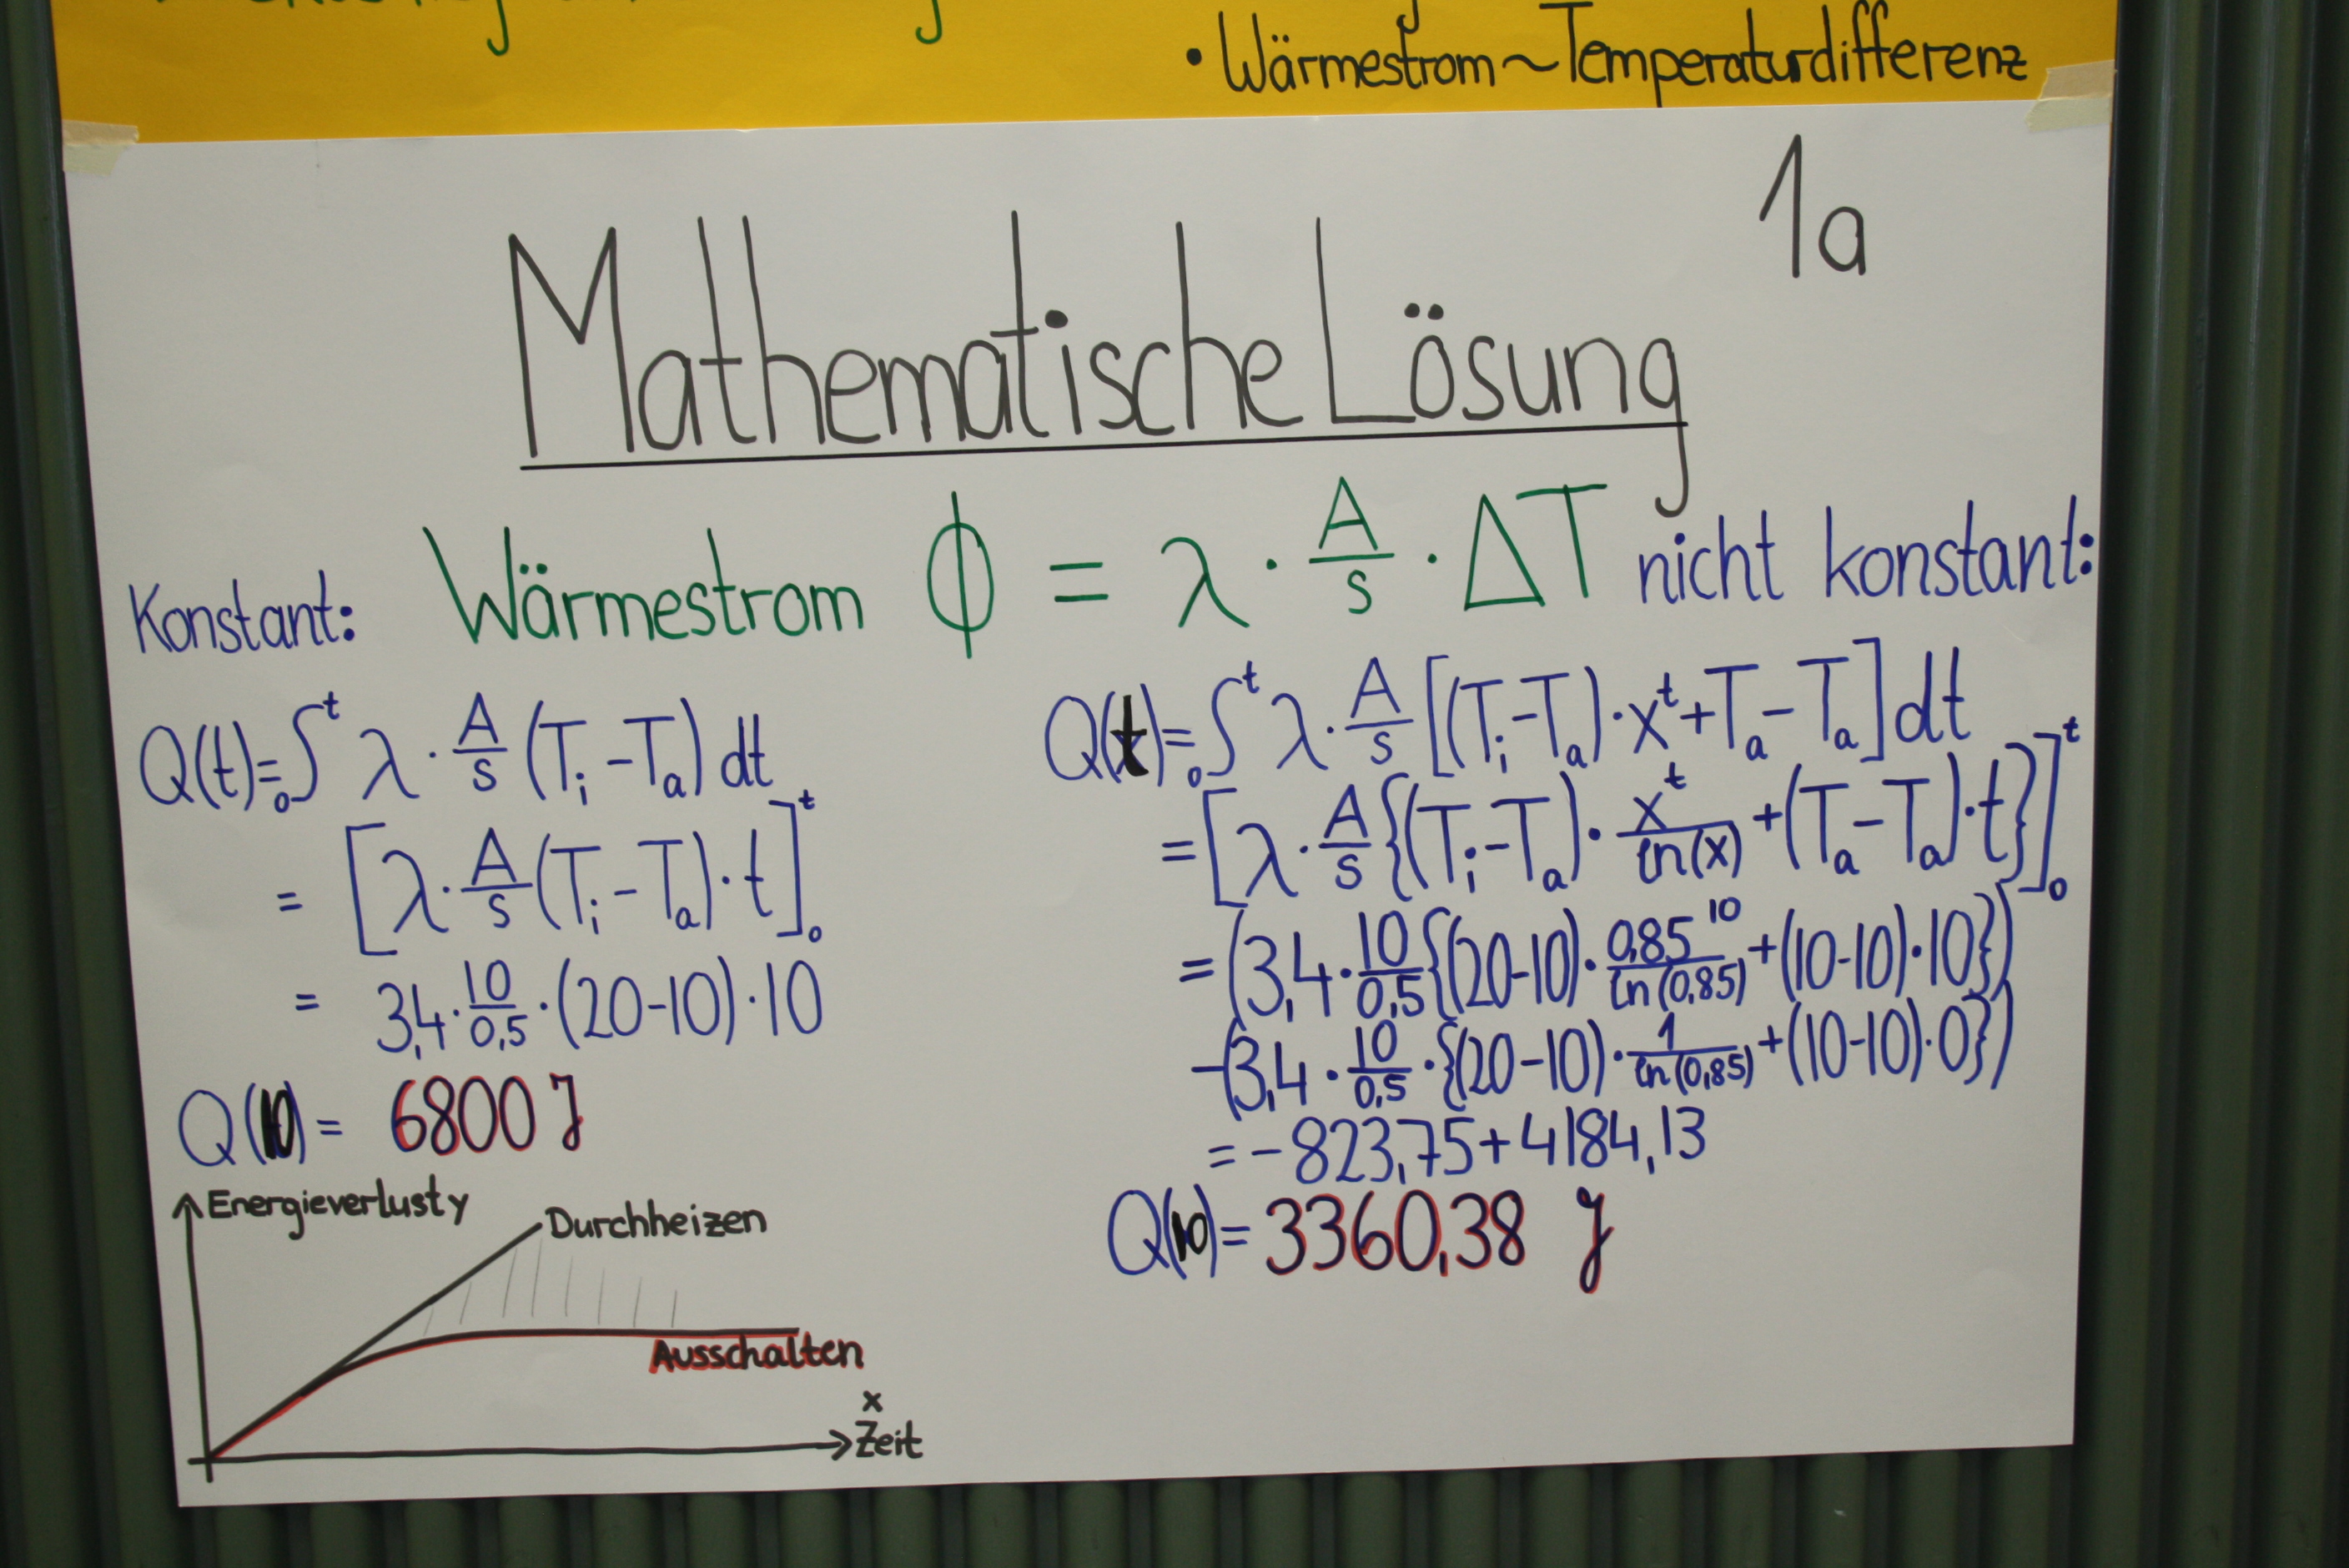 • Wärmestrom ~ Temperaturdifferenz
1a
Mathematische Lösung
Wärmestrom ϕ = λ · A/s · ΔT
Konstant:
Q(t) = ₀∫ᵗ λ · A/s (Tᵢ - Tₐ) dt
= [λ · A/s (Tᵢ - Tₐ) · t]ᵗ₀
= 3,4 · 10/0,5 · (20-10) · 10
Q(10) = 6800 J
nicht konstant:
Q(t) = ₀∫ᵗ λ · A/s [(Tᵢ - Tₐ) · xᵗ + Tₐ - Tₐ] dt
= [λ · A/s {(Tᵢ - Tₐ) · xᵗ/ln(x) + (Tₐ - Tₐ) · t}]ᵗ₀
= (3,4 · 10/0,5 {(20-10) · 0,85¹⁰/ln(0,85) + (10-10) · 10})
- (3,4 · 10/0,5 · {(20-10) · 1/ln(0,85) + (10-10) · 0})
= -823,75 + 4184,13
Q(10) = 3360,38 J
Energieverlust y
Durchheizen
Ausschalten
x
Zeit